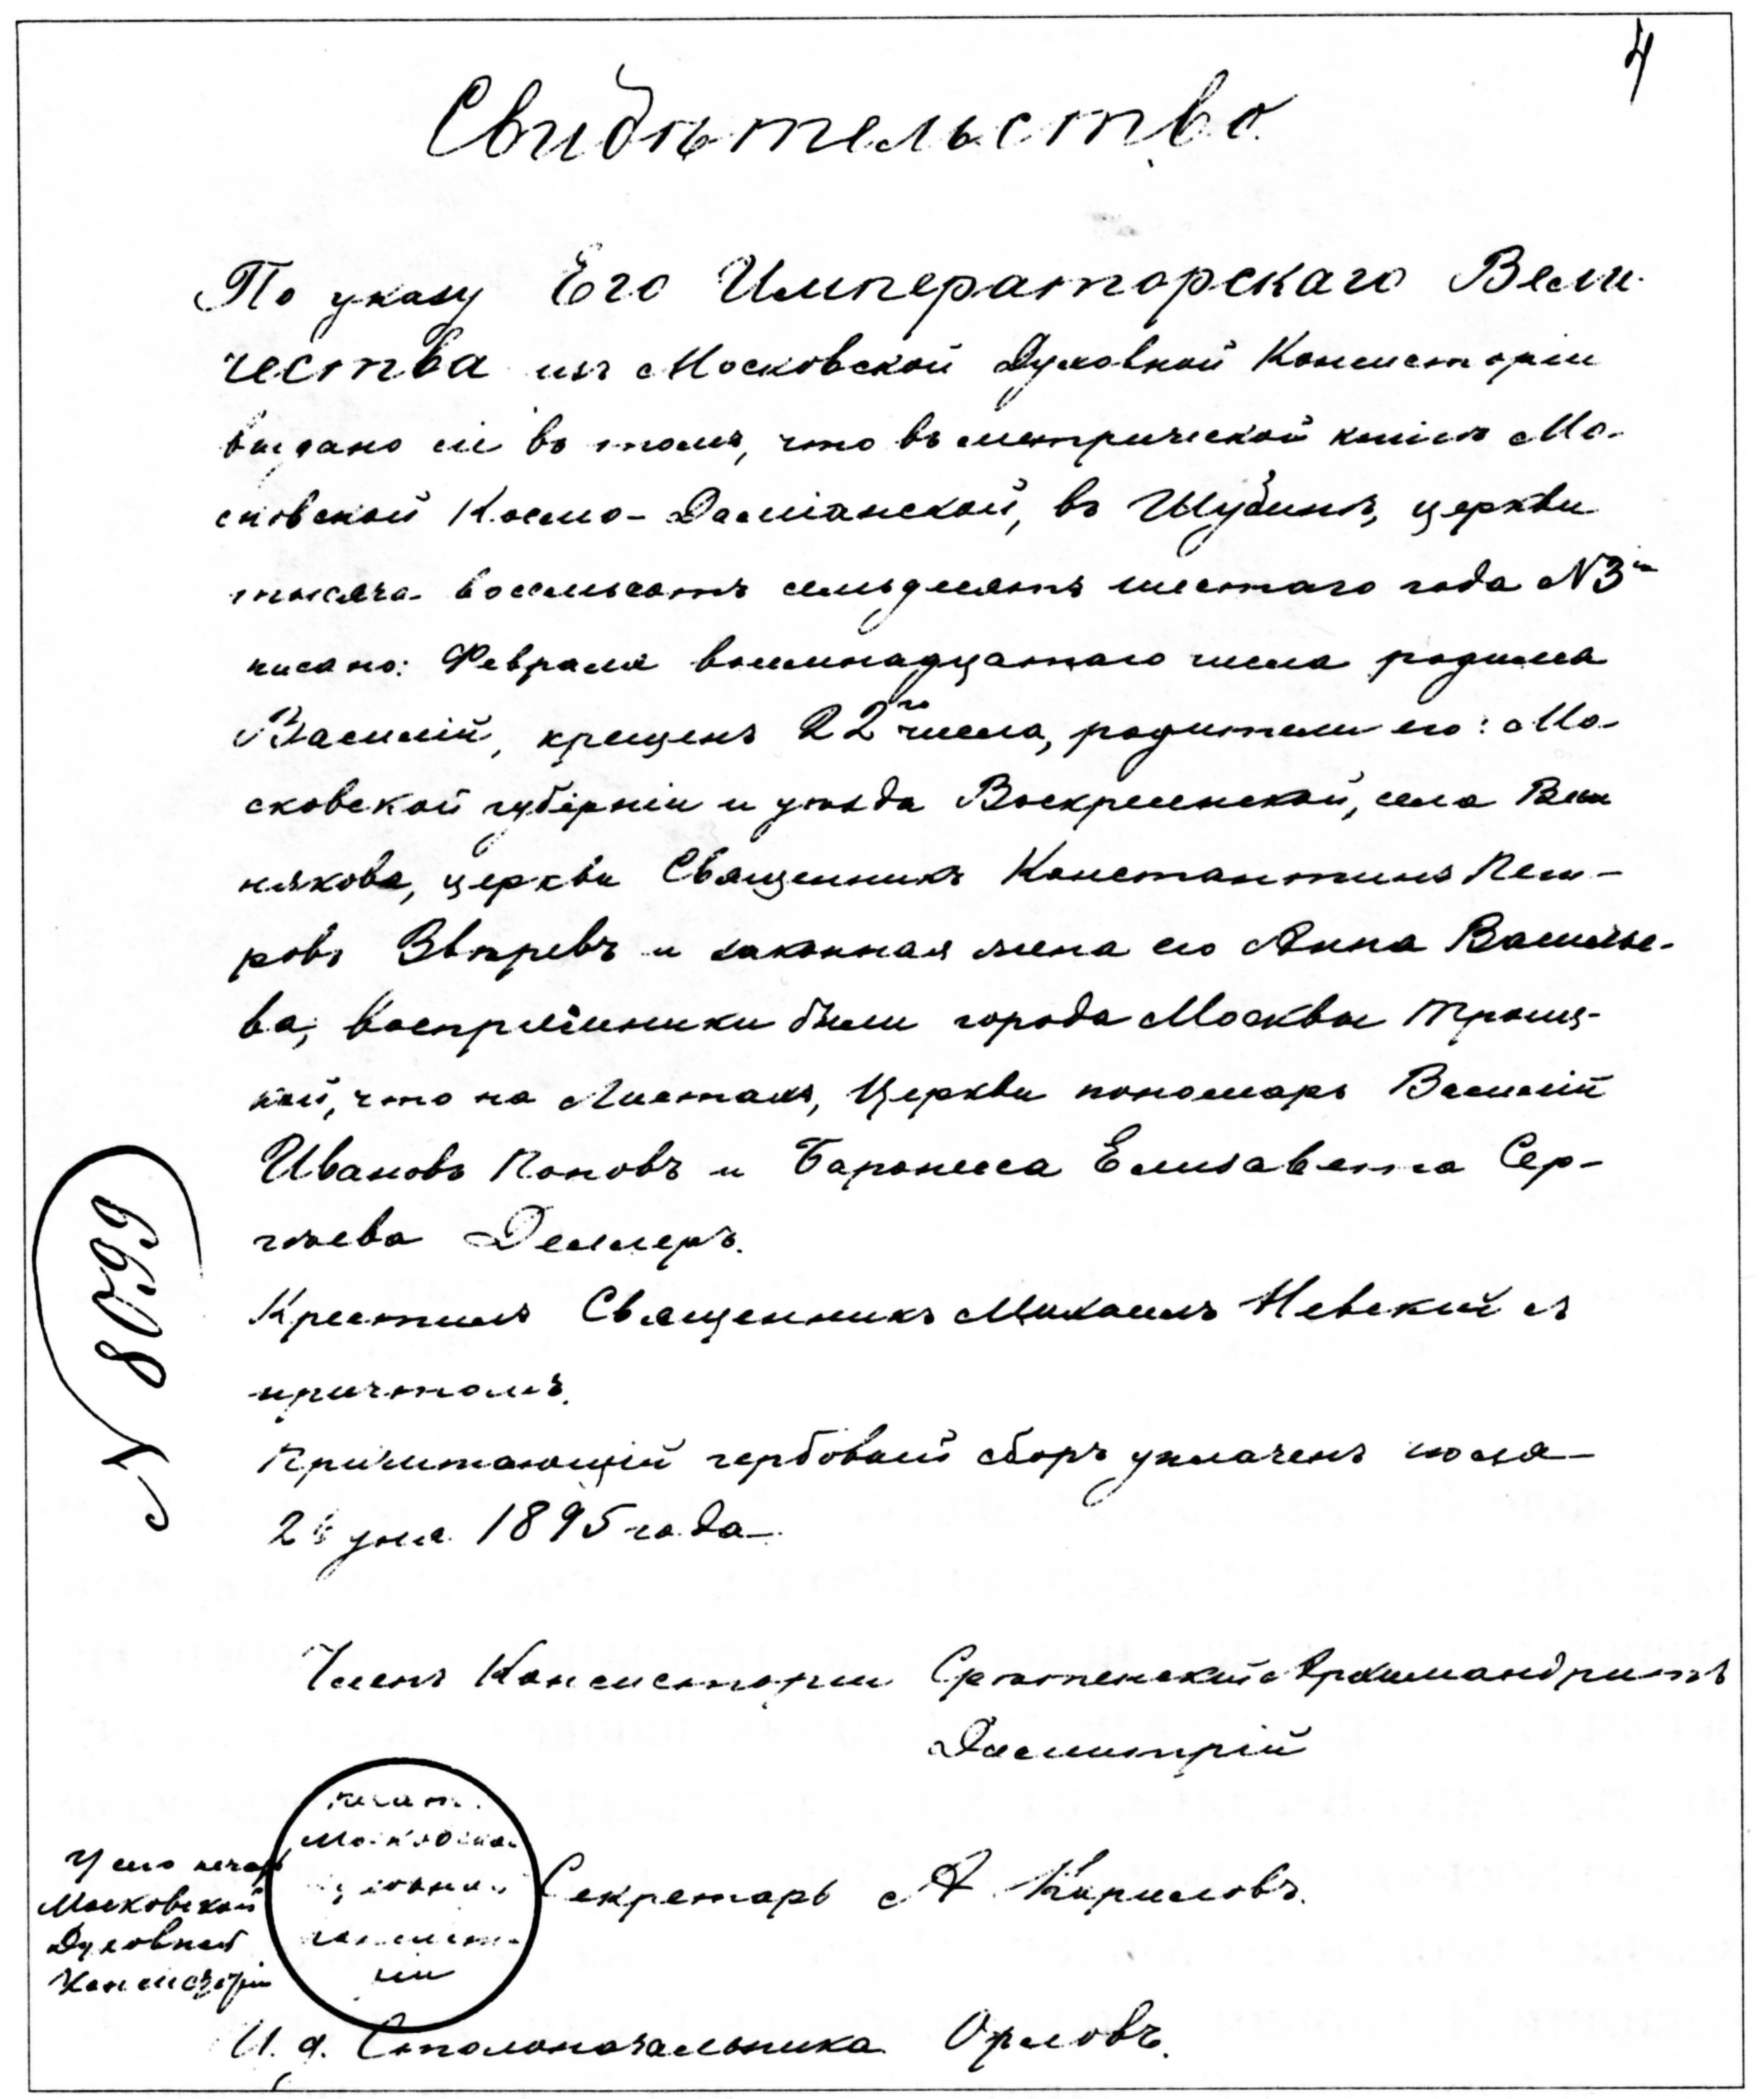 4
Свидѣтельство.
По указу Его Императорскаго Вели-
чества изъ Московской Духовной Консисторіи
выдано сіе въ томъ, что въ метрической книгѣ Мо-
сковской Космо-Даміанской, въ Шубинѣ, церкви
тысяча восемьсотъ семьдесятъ шестаго года №3
писано: Февраля восемнадцатаго числа родился
Василій, крещенъ 22го числа, родители его: Мо-
сковской губерніи и уѣзда Воскресенской, села Виш
някова, церкви Священникъ Константинъ Пет-
ровъ Звѣревъ и законная жена его Анна Василье-
ва; Воспріемники были города Москвы Троиц-
кой, что на Листахъ, Церкви пономарь Василій
Ивановъ Поповъ и Баронесса Елизавета Сер-
гѣева Деллеръ.
Крестилъ Священникъ Михаилъ Невскій съ
причтомъ.
Причитающій гербовый сборъ уплаченъ
2 дня 1895 года.
№ 8099
Членъ Консисторіи Срѣтенскій Архимандритъ
Димитрій
печат.
Московско
духовной
консисто-
ріи
У сего печать
Московской
Духовной
Консисторіи
Секретарь А. Кириловъ.
И. д. Столоначальника Орловъ.